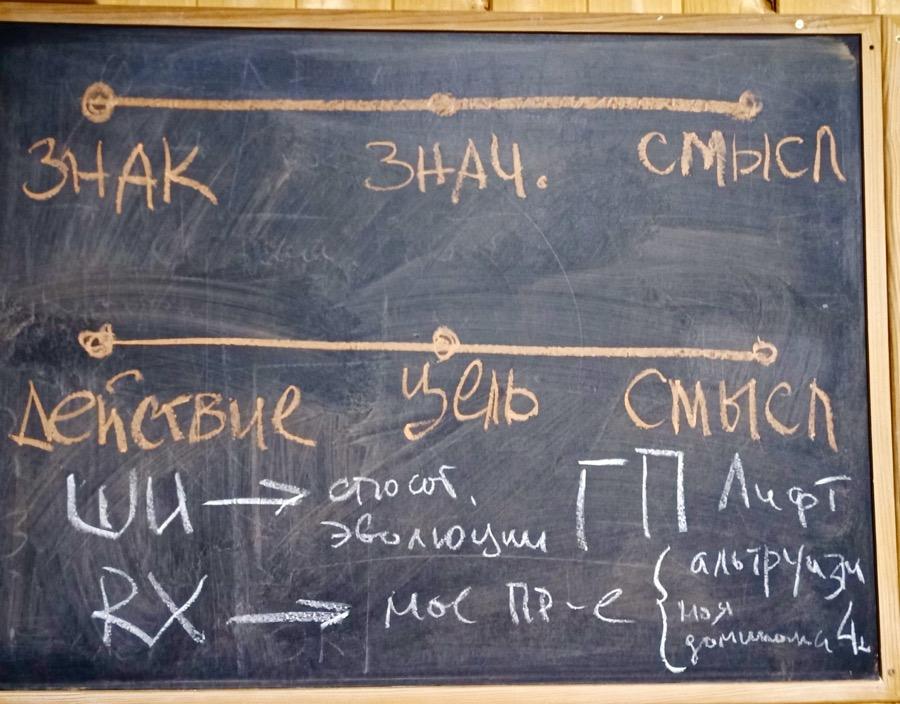 ЗНАК ЗНАЧ. СМЫСЛ
Действие Цель Смысл
ШИ → способ. ГП Лифт
эволюции
RX → мое ПР-е { альтруизм
моя